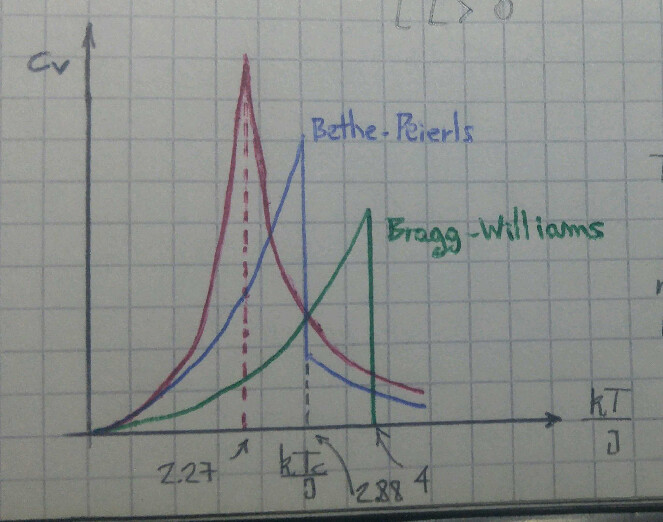 [ L > 0
Cv
Bethe-Peierls
Bragg-Williams
kT
J
2.27
kTc
J
2.88
4